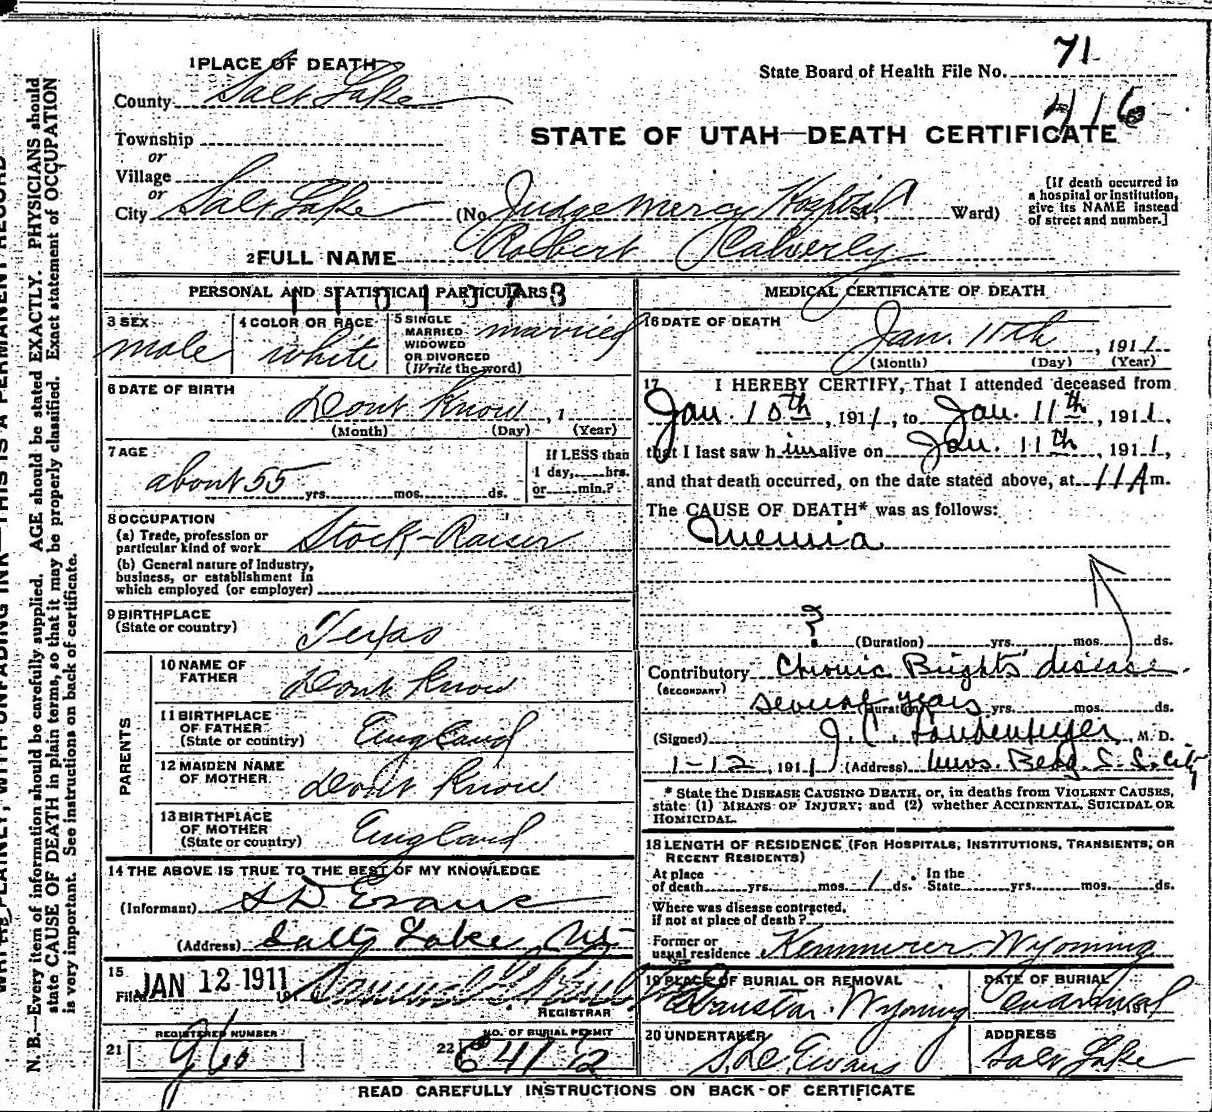 1 PLACE OF DEATH
County Salt Lake
State Board of Health File No. 71
416
Township
or
Village
or
STATE OF UTAH—DEATH CERTIFICATE
City Salt Lake (No. Judge Mercy Hospital St; Ward)
[If death occurred in a hospital or institution, give its NAME instead of street and number.]
2 FULL NAME Robert
PERSONAL AND STATISTICAL PARTICULARS
3 SEX male
4 COLOR OR RACE white
5 SINGLE MARRIED WIDOWED OR DIVORCED (Write the word) married
6 DATE OF BIRTH Dont Know , 1
(Month) (Day) (Year)
7 AGE about 55 yrs. mos. ds.
If LESS than 1 day, hrs. or min.?
8 OCCUPATION
(a) Trade, profession or particular kind of work Stock-Raiser
(b) General nature of Industry, business, or establishment in which employed (or employer)
9 BIRTHPLACE
(State or country) Texas
PARENTS
10 NAME OF FATHER Dont Know
11 BIRTHPLACE OF FATHER (State or country) England
12 MAIDEN NAME OF MOTHER Dont Know
13 BIRTHPLACE OF MOTHER (State or country) England
14 THE ABOVE IS TRUE TO THE BEST OF MY KNOWLEDGE
(Informant) S D Evans
(Address) Salt Lake
15 Filed JAN 12 1911
REGISTRAR
21 REGISTERED NUMBER
22 NO. OF BURIAL PERMIT
MEDICAL CERTIFICATE OF DEATH
16 DATE OF DEATH
Jan. 11th , 1911
(Month) (Day) (Year)
17 I HEREBY CERTIFY, That I attended deceased from
Jan. 10th , 1911, to Jan. 11th , 1911.
that I last saw him alive on Jan. 11th , 1911,
and that death occurred, on the date stated above, at 11 A m.
The CAUSE OF DEATH* was as follows:
Uremia
?
(Duration) yrs. mos. ds.
Contributory Chronic Brights disease
(SECONDARY)
several years (Duration) yrs. mos. ds.
(Signed) J. C. M. D.
1-12, 1911 (Address)
* State the DISEASE CAUSING DEATH, or, in deaths from VIOLENT CAUSES, state (1) MEANS OF INJURY; and (2) whether ACCIDENTAL, SUICIDAL OR HOMICIDAL.
18 LENGTH OF RESIDENCE (FOR HOSPITALS, INSTITUTIONS, TRANSIENTS, OR RECENT RESIDENTS)
At place of death yrs. mos. 1 ds. In the State yrs. mos. ds.
Where was disease contracted, if not at place of death?
Former or usual residence Kemmerer Wyoming
19 PLACE OF BURIAL OR REMOVAL
Evanston Wyoming
DATE OF BURIAL
, 191
20 UNDERTAKER S. D. Evans
ADDRESS Salt Lake
READ CAREFULLY INSTRUCTIONS ON BACK OF CERTIFICATE
WRITE PLAINLY, WITH UNFADING INK—THIS IS A PERMANENT RECORD
N. B.—Every item of information should be carefully supplied. AGE should be stated EXACTLY. PHYSICIANS should
state CAUSE OF DEATH in plain terms, so that it may be properly classified. Exact statement of OCCUPATION
is very important. See instructions on back of certificate.